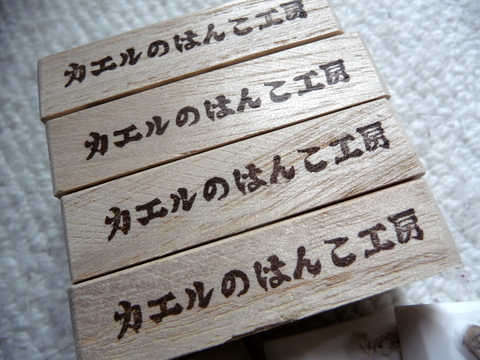 カエルのはんこ工房
カエルのはんこ工房
カエルのはんこ工房
カエルのはんこ工房